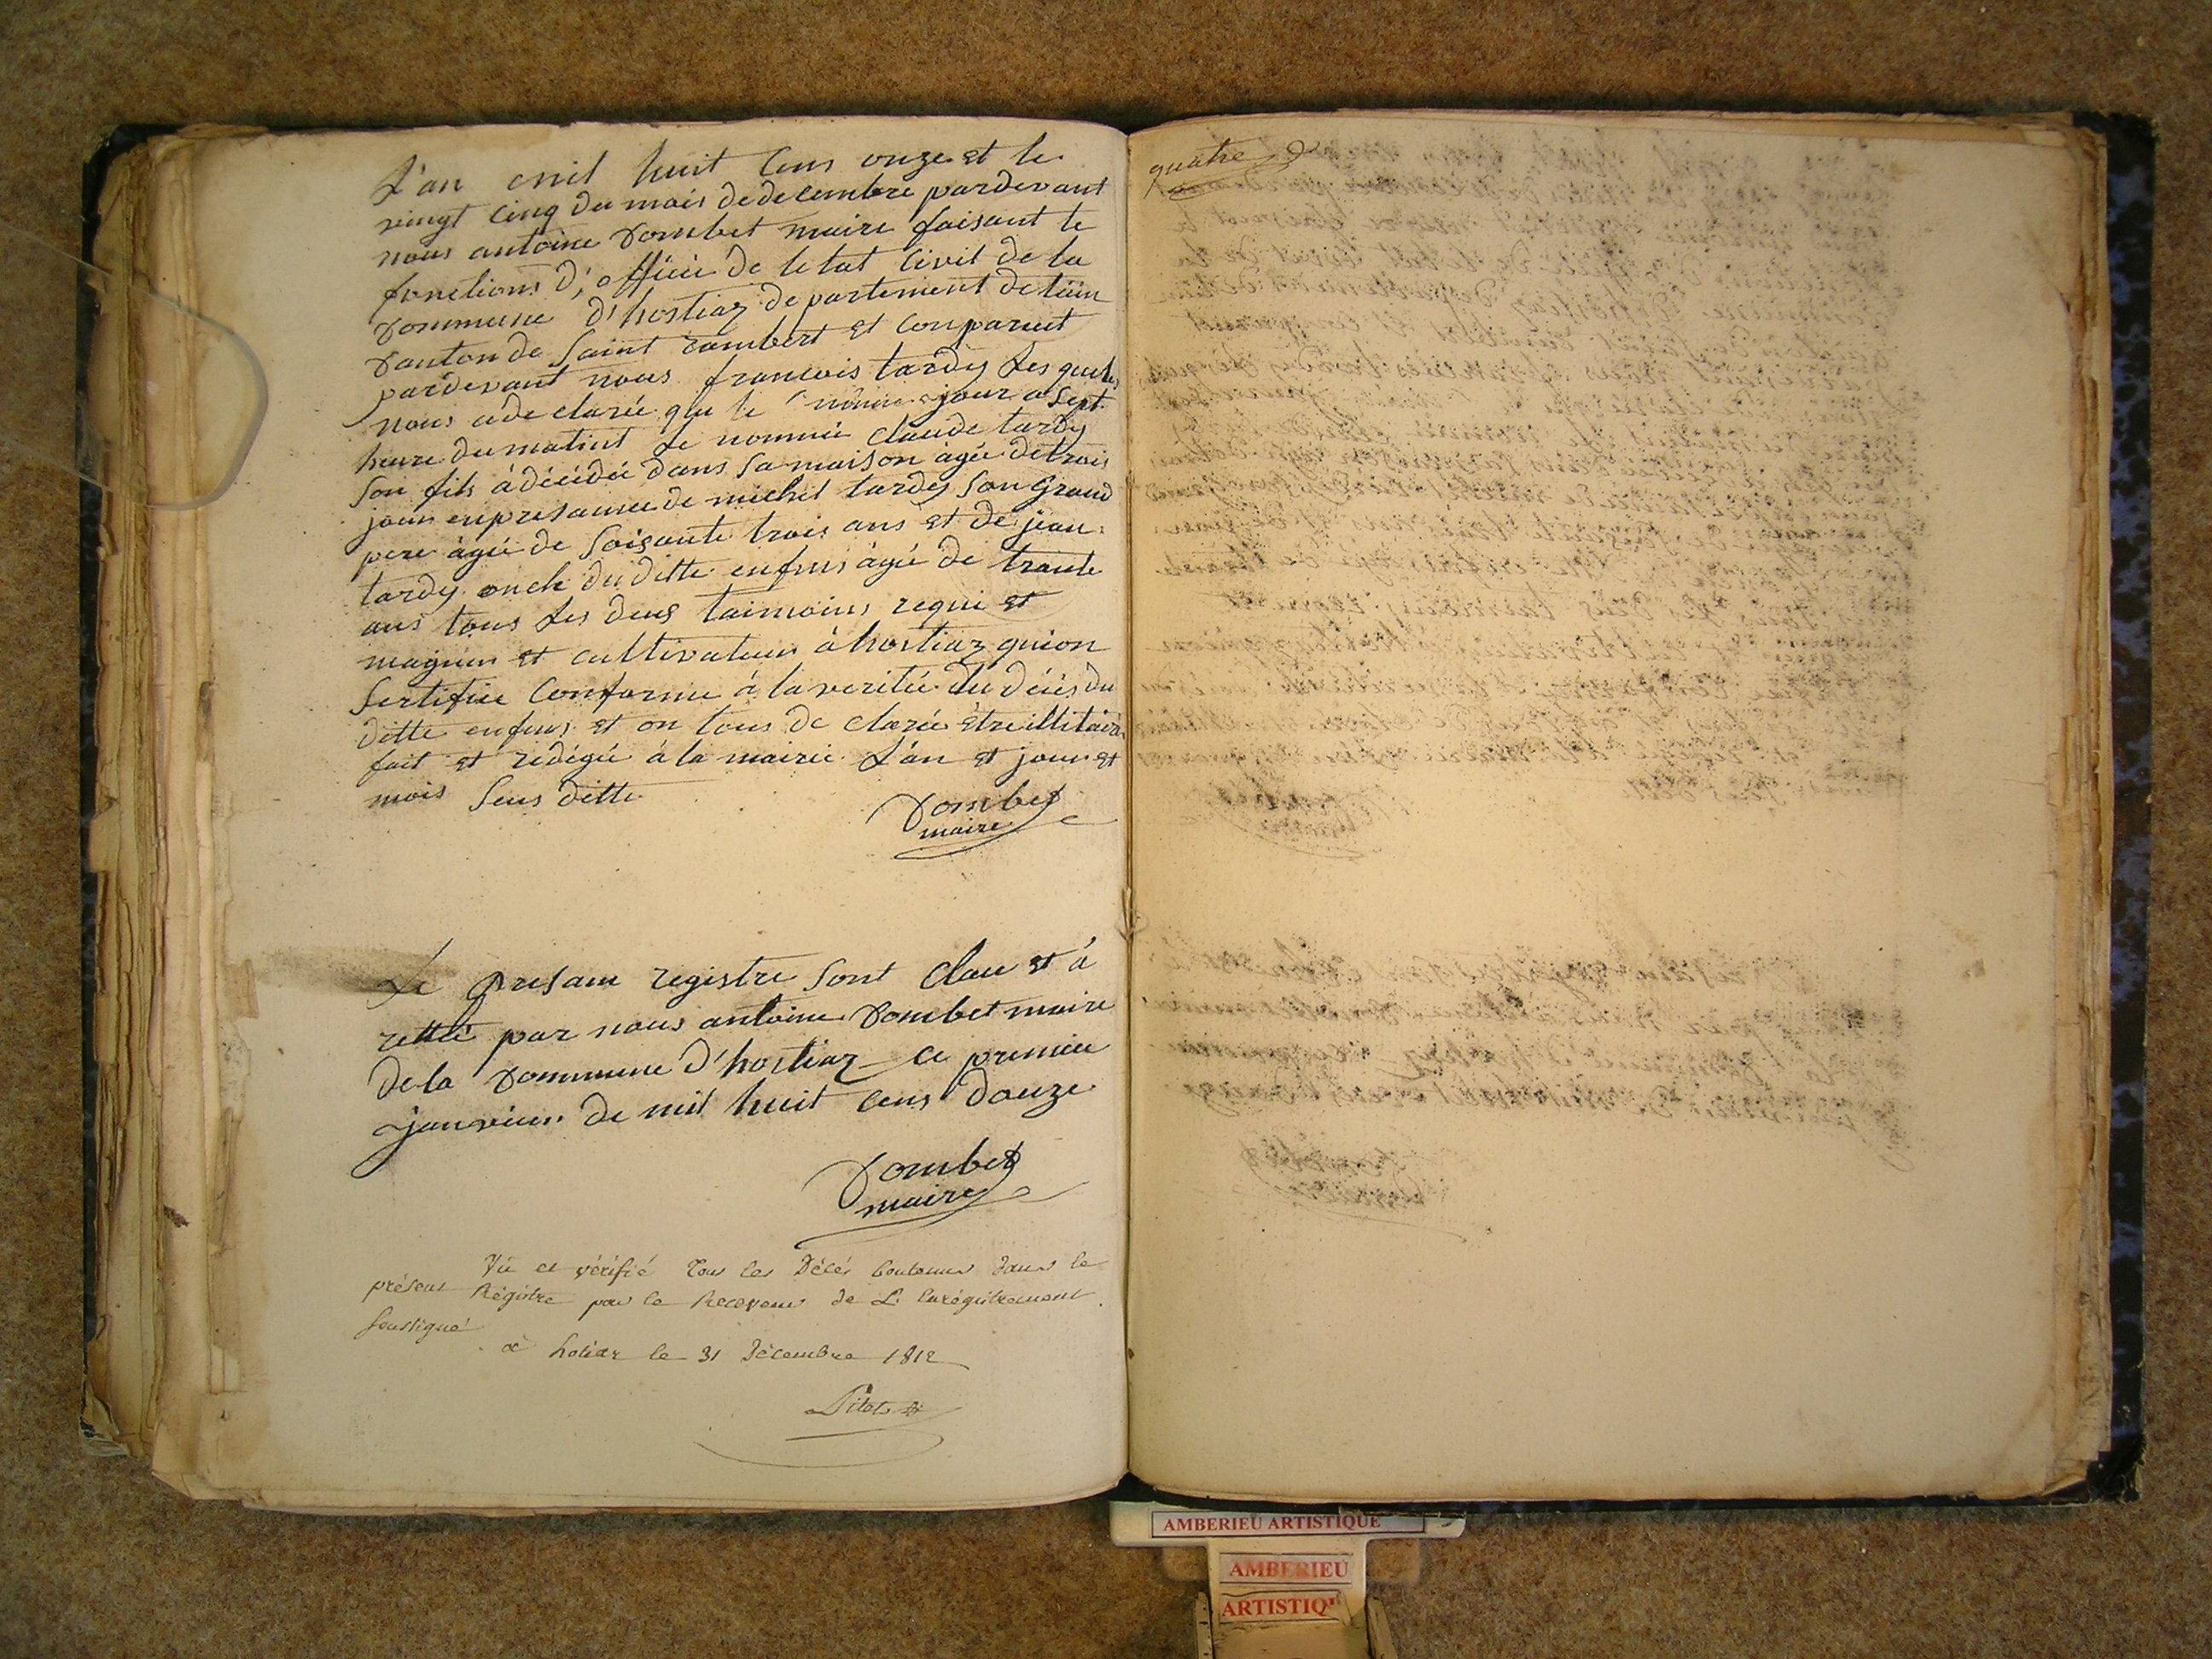 L'an mil huit Cens onze et le
vingt Cinq du mois de decembre pardevant
nous antoine Combet maire faisant le
fonctions d'officié de letat Civil de la
Commune d'hostiaz departement de lain
Canton de Saint rambert et Conparut
pardevant nous francois tardy Les quels
nous a de clarée que le même jour a Sept
heure du matint Le nommée claude tardy
Son fils à décédée dans Sa maison agée de trois
jour en presance de michel tardy Son Grand
pere àgée de Soisante trois ans et de jean
tardy oncle du ditte enfens àgé de trante
ans tous Les deus taimoins requi et
et cultivateur à hostiaz qui on
Sertifiée Conforme à la veritée du décés du
ditte enfens et on tous de clarée être illitaire
fait et redégée à la mairie L'an et jour et
mois Sus ditte
Combet
maire
Le presant registre Sont Clau et à
retté par nous antoine Combet maire
de la Commune d'hostiaz ce premiee
janvier de mil huit Cens douze
Combet
maire
Vu et vérifié tous les Décés Contenus dans le
présent Régitre par le Receveur de L'Enrégitrement
Soussigné
à hotiaz le 31 Décembre 1812
quatre
AMBERIEU ARTISTIQUE
AMBERIEU
ARTISTIQ